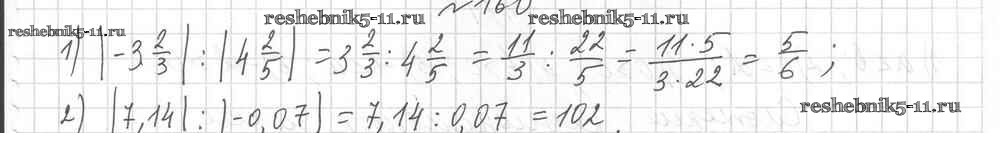 №160
reshebnik5-11.ru reshebnik5-11.ru
reshebnik5-11.ru
1) |-3 2/3| : |4 2/5| = 3 2/3 : 4 2/5 = 11/3 : 22/5 = 11·5/3·22 = 5/6 ;
2) |7,14| : |-0,07| = 7,14 : 0,07 = 102.
reshebnik5-11.ru